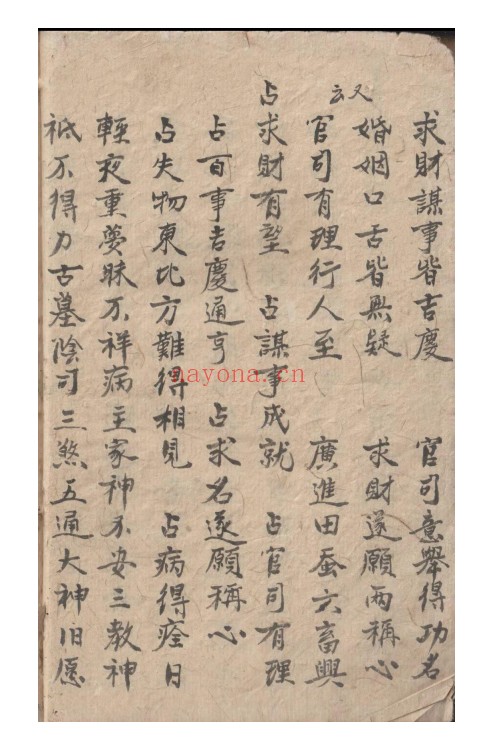 求財謀事皆吉慶 官司意舉得功名
婚姻口舌皆無疑 求財遂願兩稱心
又云
官司有理行人至 廣進田蚕六畜興
占求財有望 占謀事成就 占官司有理
占百事吉慶通亨 占求名遂願稱心
占失物東北方難得相見 占病得痊日
輕夜重夢昧不祥病主家神不安三教神
祇不得力古墓陰司三煞五通大神旧愿
nayona.cn